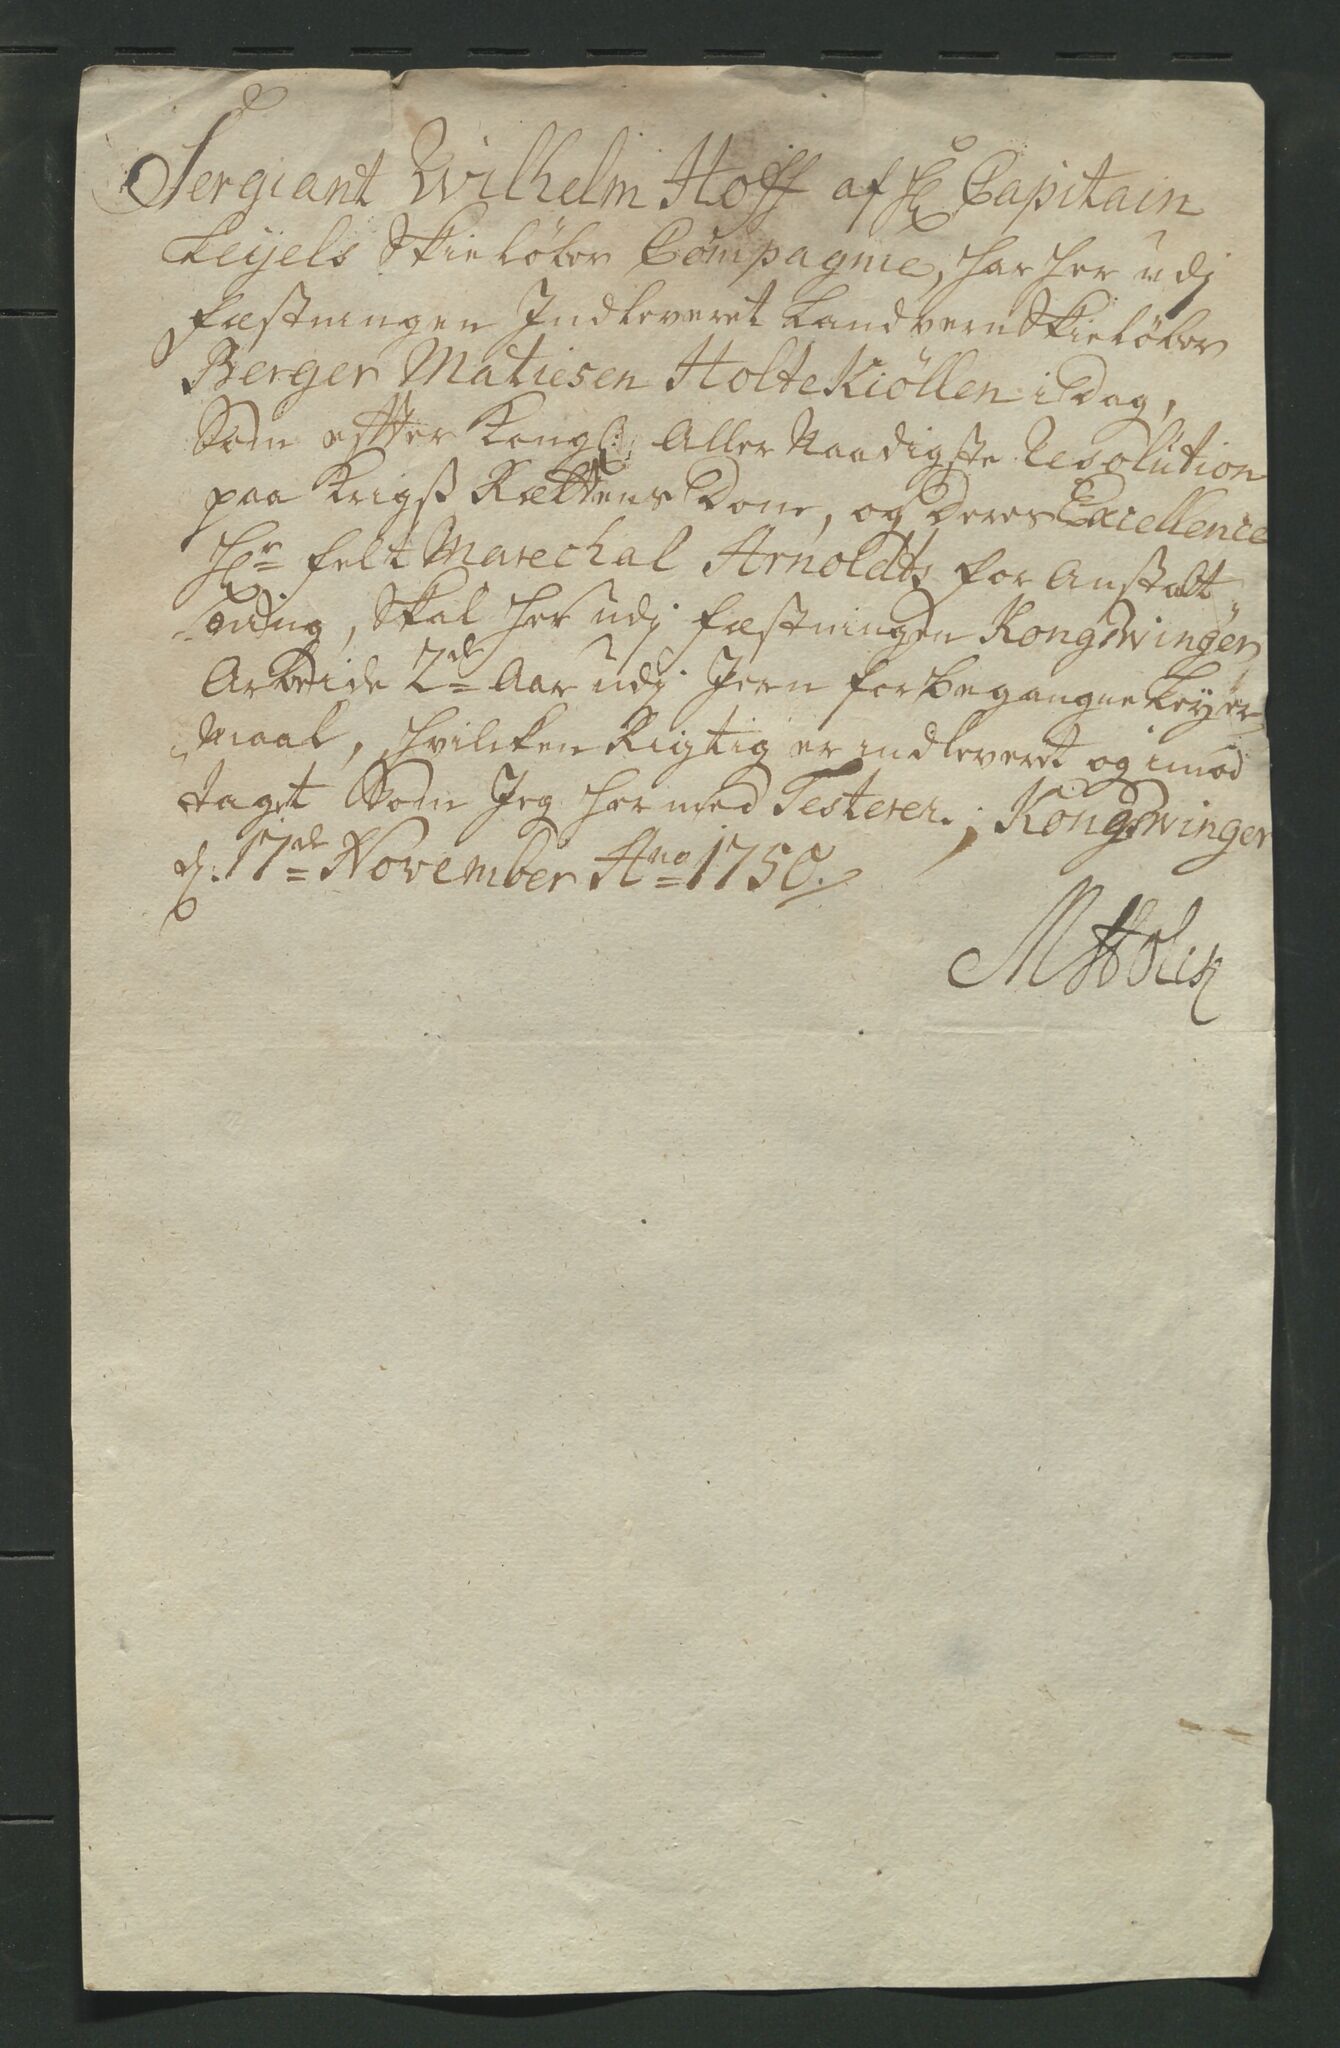 Sergiant Wilhelm Hoff af Hr Capitain
Leyels Skieløber Compagnie, har her udj
fæstningen Indleveret Landvern Skieløber
Berger Matiesen HolteKiöllen i Dag,
Som efter Kongl: Aller Naadigste Resolution
paa Krigs Rættens Dom, og Deres Excellence
Hr felt Marechal Arnoldts for Anstalt
"ning, Skal her udj fæstningen Kongswinger
Arbeide 2de Aar udj Jern for begangne Leyer
"maal, hvilcken Rigtig er indleveret og imod
taget Som Jeg her med Testerer. ; Kongswinger
d: 17de November Ano 1750.